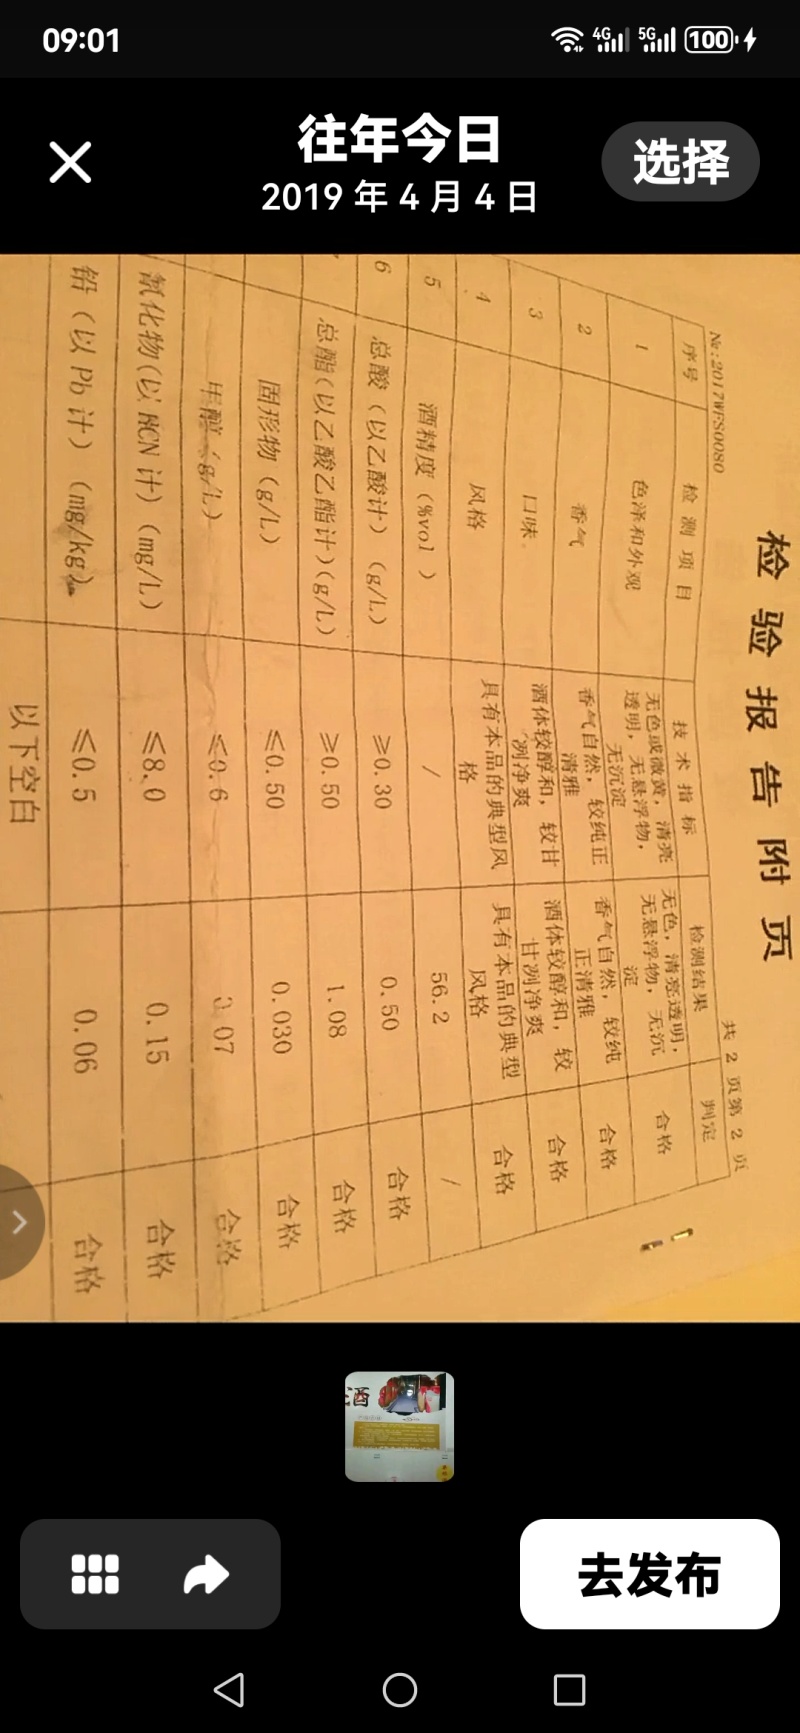 09:01
4G
5G
100
往年今日
2019 年 4 月 4 日
选择
检验报告附页
№:2017WFS0080
共 2 页第 2 页
序号 检测项目 技术指标 检测结果 判定
1 色泽和外观 无色或微黄，清亮透明，无悬浮物，无沉淀 无色，清亮透明，无悬浮物，无沉淀 合格
2 香气 香气自然，较纯正清雅 香气自然，较纯正清雅 合格
3 口味 酒体较醇和，较甘冽净爽 酒体较醇和，较甘冽净爽 合格
4 风格 具有本品的典型风格 具有本品的典型风格 合格
5 酒精度（%vol） / 56.2 /
6 总酸（以乙酸计）（g/L） ≥0.30 0.50 合格
总酯（以乙酸乙酯计）（g/L） ≥0.50 1.08 合格
固形物（g/L） ≤0.50 0.030 合格
甲醇（g/L） ≤0.6 07 合格
氰化物（以 HCN 计）（mg/L） ≤8.0 0.15 合格
铅（以 Pb 计）（mg/kg） ≤0.5 0.06 合格
以下空白
酒
去发布